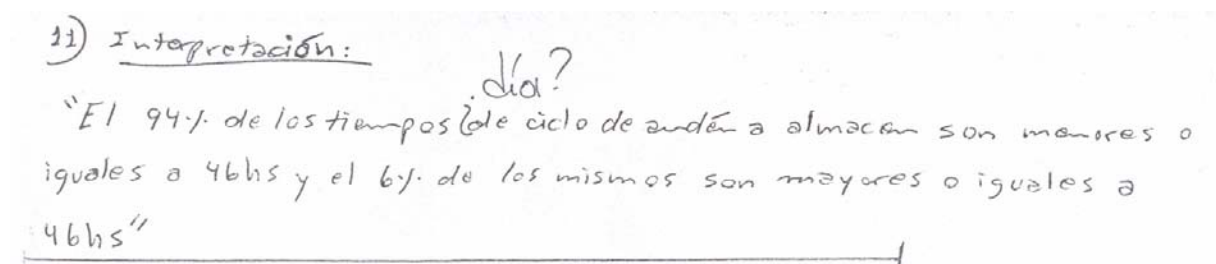 11) Interpretación:
día?
"El 94% de los tiempos de ciclo de andén a almacen son menores o
iguales a 46hs y el 6% de los mismos son mayores o iguales a
46hs"